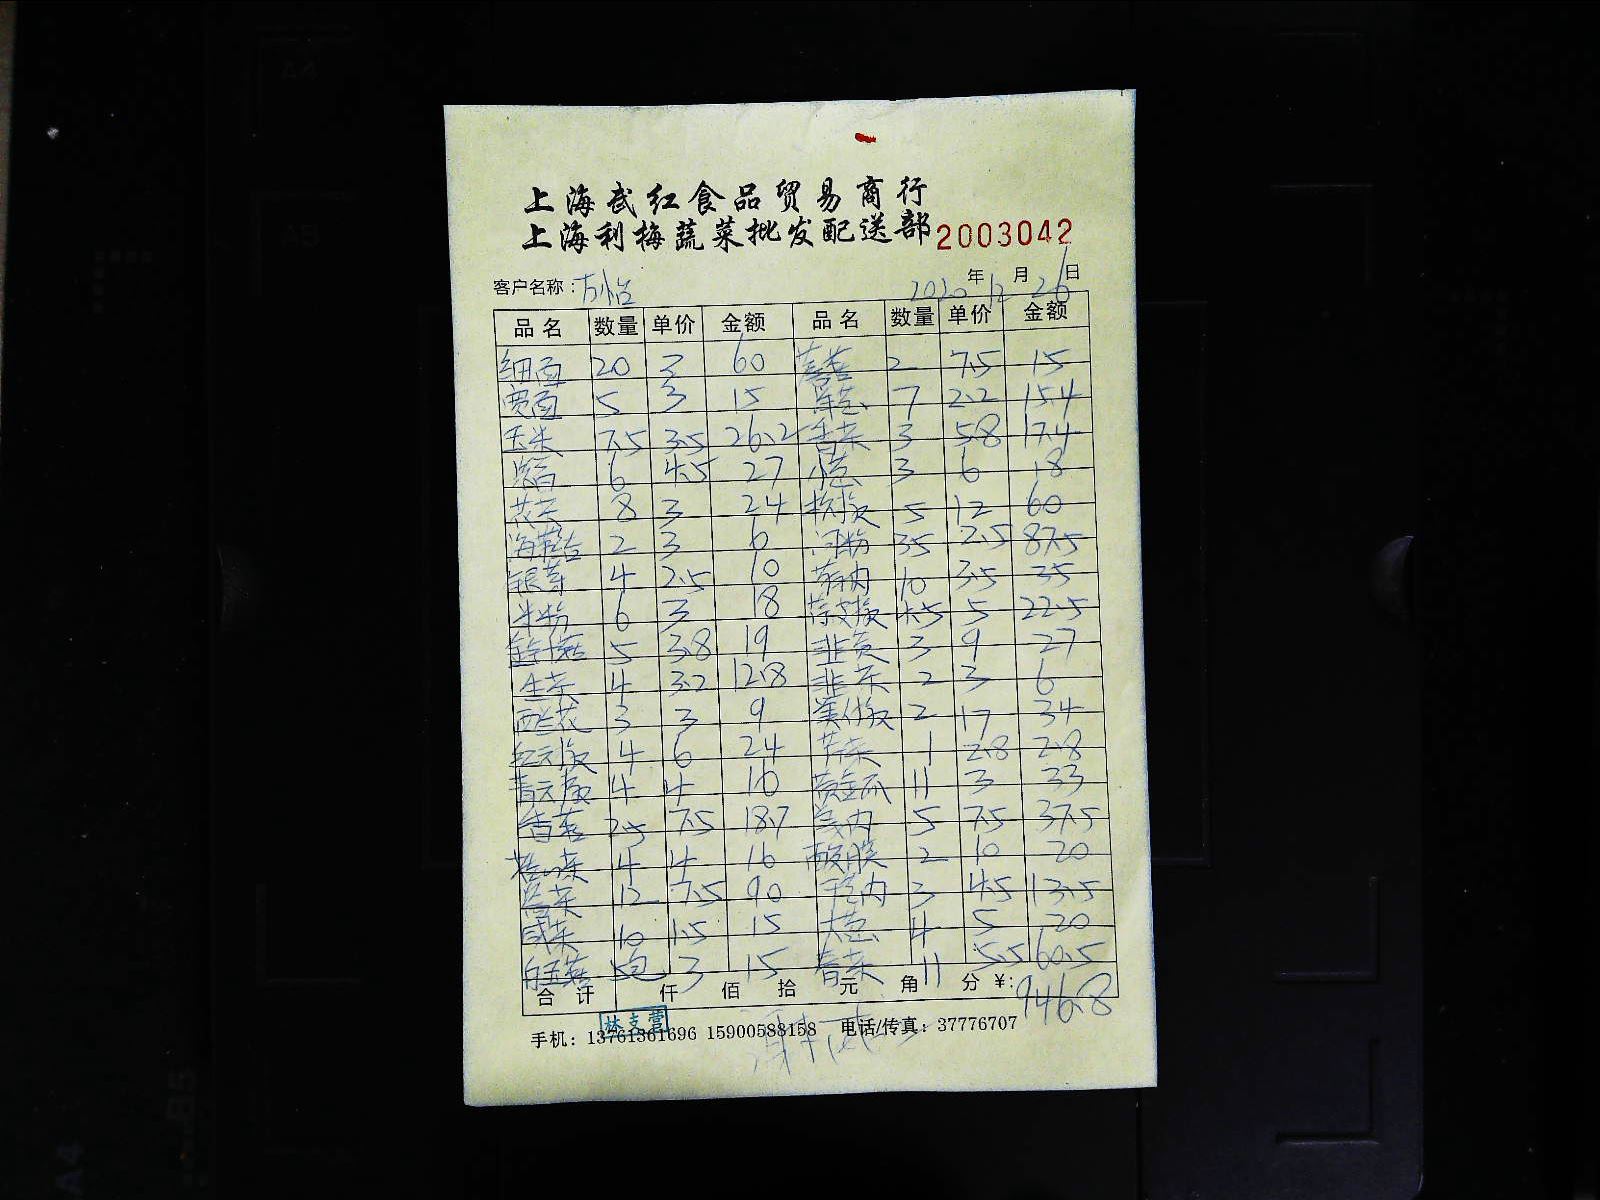 上海武红食品贸易商行
上海利梅蔬菜批发配送部 2003042
客户名称: 2020年12月26日
品名 数量 单价 金额 品名 数量 单价 金额
细面 20 3 60 2 7.5 15
宽面 5 3 15 洋葱 7 2.2 15.4
玉米 7.5 3.5 26.2 香菜 3 5.8 17.4
6 4.5 27 小葱 3 6 18
花菜 8 3 24 杭椒 5 12 60
海带结 2 3 6 河粉 35 2.5 87.5
银芽 4 2.5 10 10 3.5 35
米粉 6 3 18 4.5 5 22.5
金针菇 5 3.8 19 韭黄 3 9 27
生菜 4 3.2 12.8 韭菜 2 3 6
西兰花 3 3 9 美人椒 2 17 34
红元椒 4 6 24 芹菜 1 2.8 2.8
青元椒 4 4 16 黄金瓜 11 3 33
香菇 2.5 7.5 18.7 5 7.5 37.5
4 4 16 2 10 20
12 7.5 90 3 4.5 13.5
咸菜 10 1.5 15 大葱 4 5 20
白玉菇 5包 3 15 青菜 11 5.5 60.5
合计 仟 佰 拾 元 角 分 ¥: 946.8
林支营
手机: 13761361696 15900588158 电话/传真: 37776707